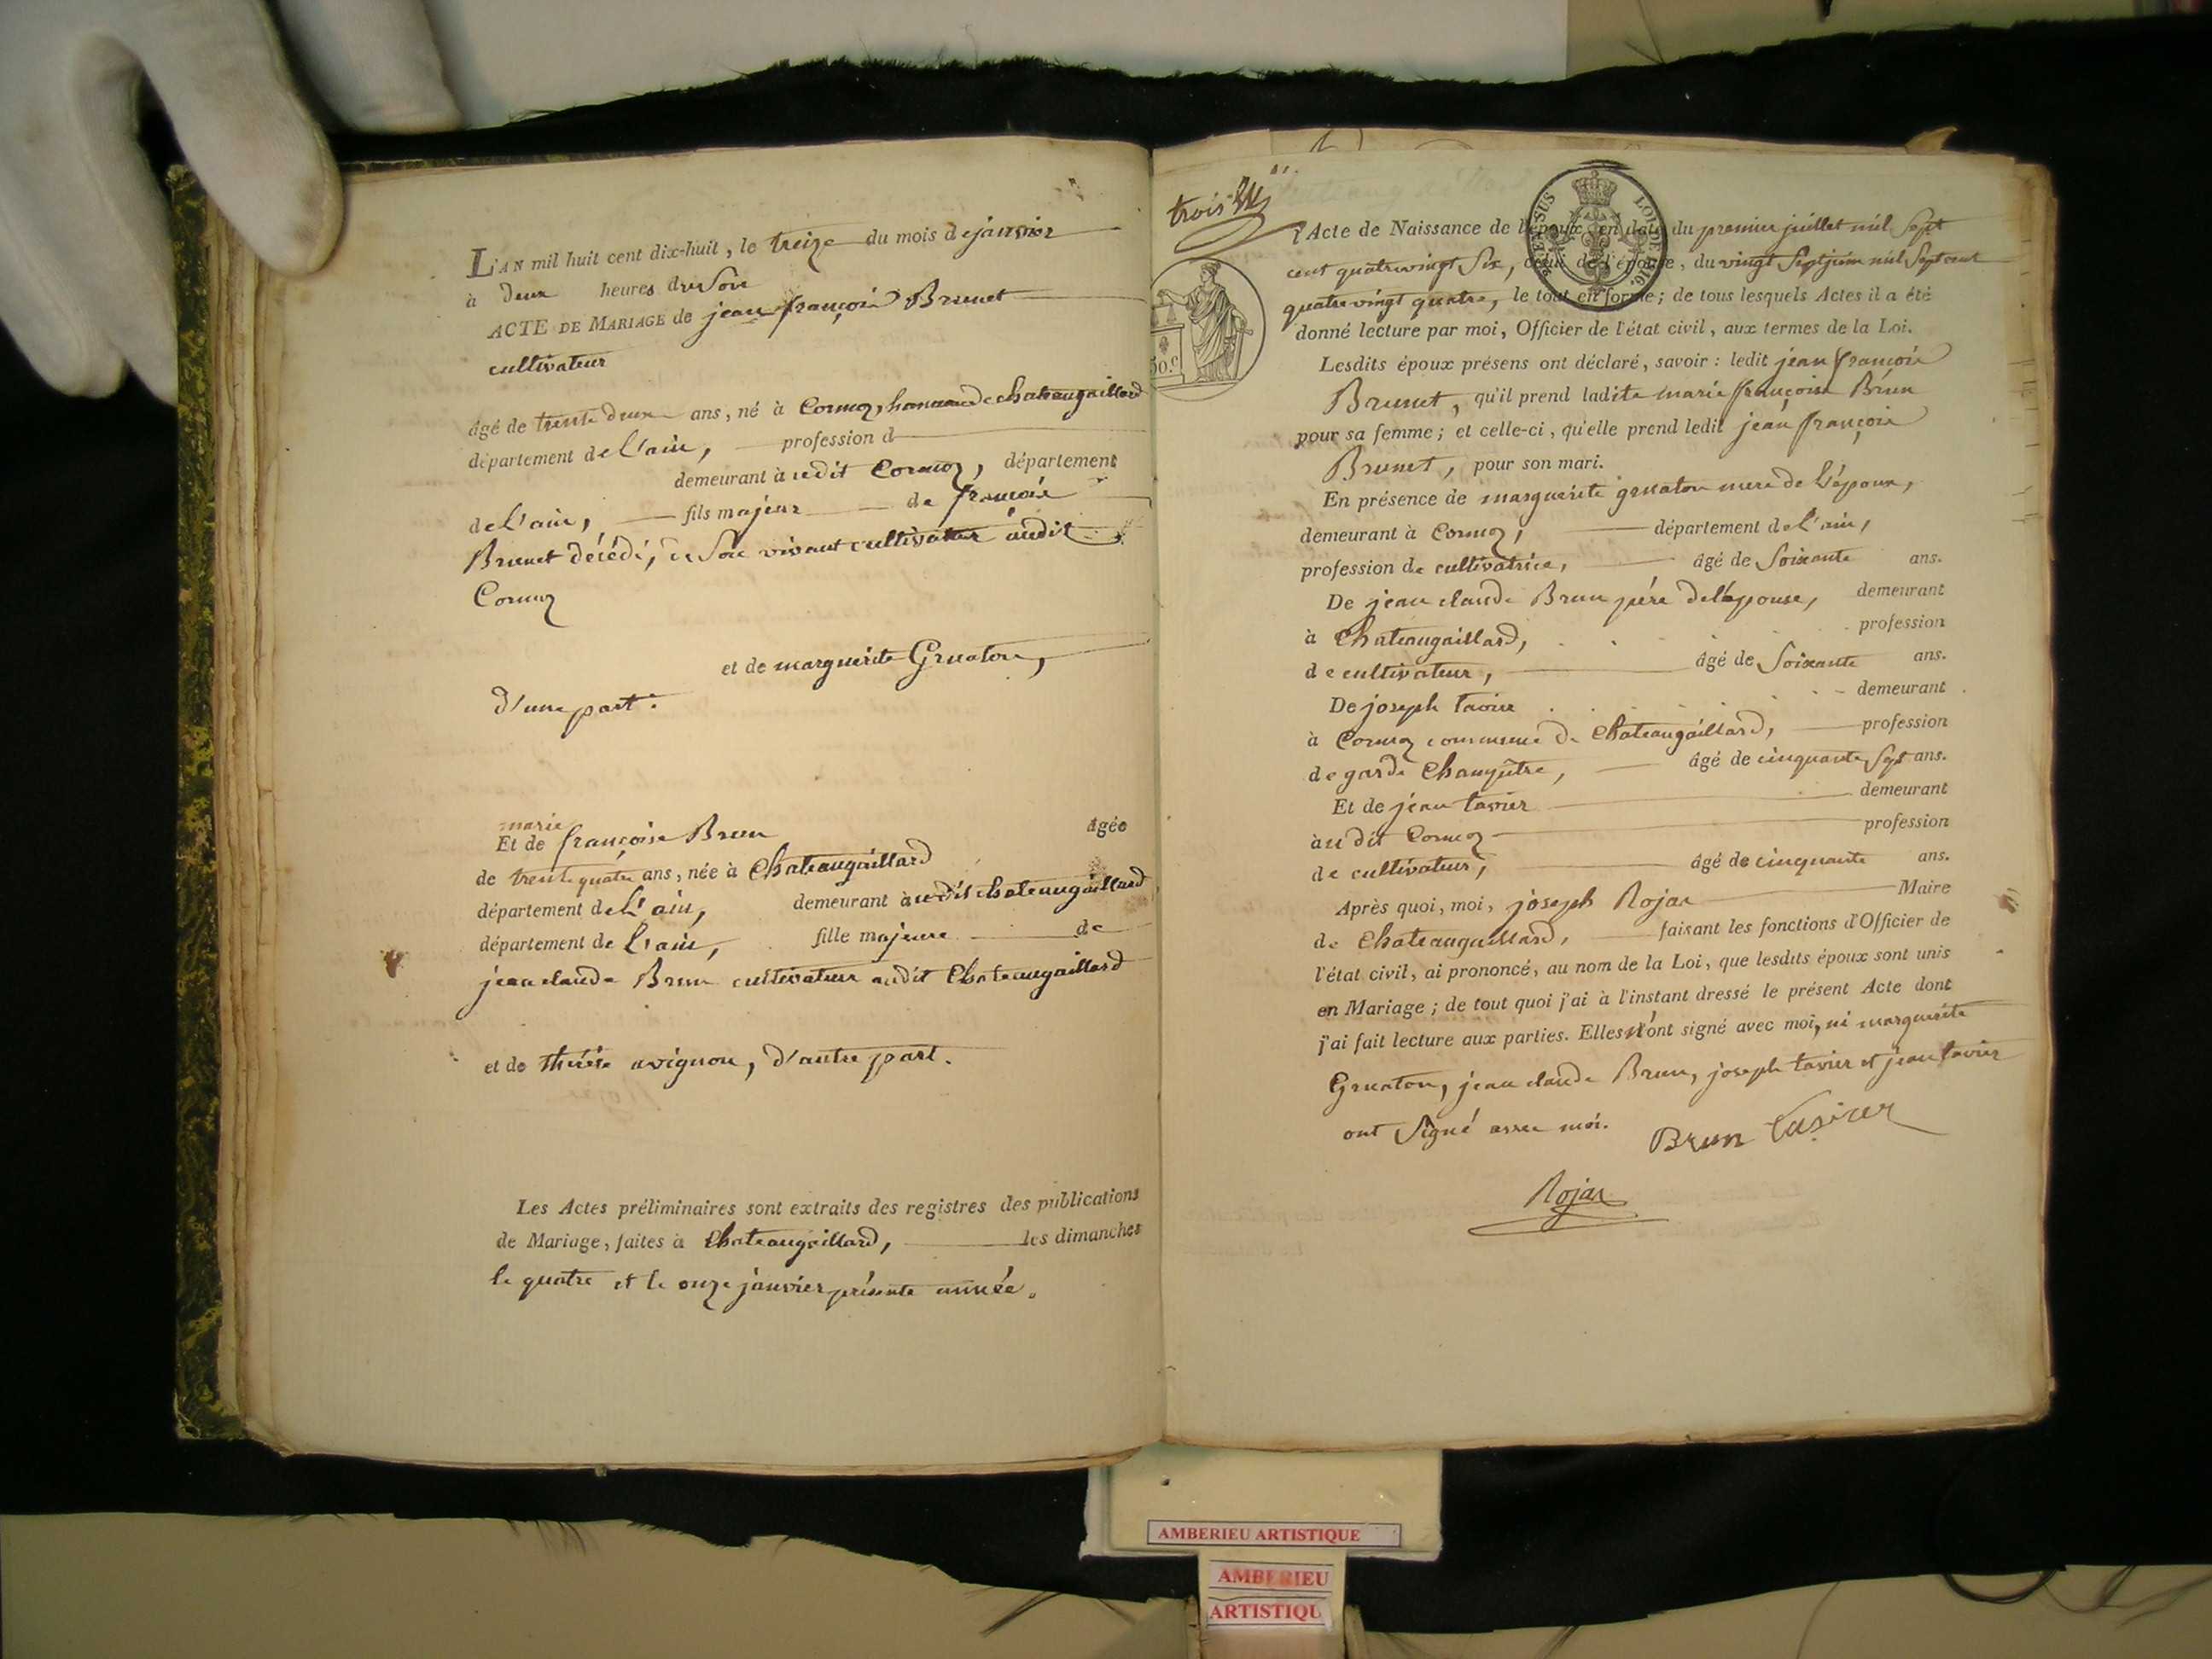 L'AN mil huit cent dix-huit, le treize du mois de janvier
à deux heures du Soir
ACTE DE MARIAGE de jean françois Brunet
cultivateur
âgé de trente deux ans, né à Cormoz, hameau de chateaugaillard
département de l'ain, profession d
demeurant à udit Cormoz, département
de l'ain, fils majeur de françois
Brunet décédé, de Son vivant cultivateur audit
Cormoz
et de marguerite Gruaton,
d'une part.
marie
Et de françoise Brun âgée
de trente quatre ans, née à Chateaugaillard
département de l'ain, demeurant audit chateaugaillard
département de l'ain, fille majeure de
jean claude Brun cultivateur audit Chateaugaillard
et de thérèse avignon, d'autre part.
Les Actes préliminaires sont extraits des registres des publications
de Mariage, faites à Chateaugaillard, les dimanches
le quatre et le onze janvier présente année.
trois
l'Acte de Naissance de l'époux en date du premier juillet mil Sept
cent quatrevingt Six, celui de l'épouse, du vingt Sept juin mil Sept cent
quatrevingt quatre, le tout en forme; de tous lesquels Actes il a été
donné lecture par moi, Officier de l'état civil, aux termes de la Loi.
Lesdits époux présens ont déclaré, savoir : ledit jean françois
Brunet, qu'il prend ladite marie françoise Brun
pour sa femme; et celle-ci, qu'elle prend ledit jean françois
Brunet, pour son mari.
En présence de marguerite gruaton mere de l'époux,
demeurant à Cormoz, département de l'ain,
profession de cultivatrice, âgé de Soixante ans.
De jean claude Brun père de l'épouse, demeurant
à Chateaugaillard, profession
de cultivateur, âgé de Soixante ans.
De joseph tavier demeurant
à Cormoz commune de Chateaugaillard, profession
de garde Champêtre, âgé de cinquante Sept ans.
Et de jean tavier demeurant
àudit Cormoz profession
de cultivateur, âgé de cinquante ans.
Après quoi, moi, joseph Rojat Maire
de Chateaugaillard, faisant les fonctions d'Officier de
l'état civil, ai prononcé, au nom de la Loi, que lesdits époux sont unis
en Mariage; de tout quoi j'ai à l'instant dressé le présent Acte dont
j'ai fait lecture aux parties. Elles n'ont signé avec moi, ni marguerite
Gruaton, jean claude Brun, joseph tavier et jean tavier
ont Signé avec moi. Brun tavier
Rojat
50.c
LOI DE 1816.
AMBERIEU ARTISTIQUE
AMBERIEU
ARTISTIQU